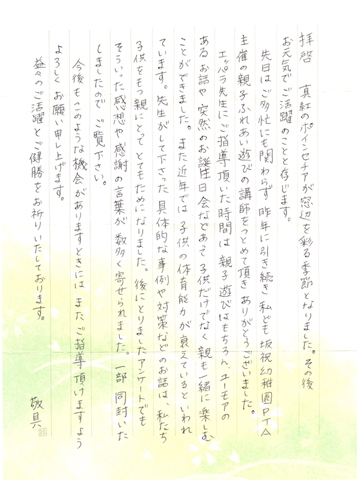 拝啓　真紅のポインセチアが窓辺を彩る季節となりました。その後
お元気でご活躍のことと存じます。
先日はご多忙にも関わらず昨年に引き続き、私ども坂祝幼稚園PTA
主催の親子ふれあい遊びの講師をつとめて頂きありがとうございました。
エッパラ先生にご指導頂いた時間は、親子遊びはもちろん、ユーモアの
あるお話や突然のお誕生日会などあって子供だけでなく親も一緒に楽しむ
ことができました。また近年では子供の体育能力が衰えているといわれ
ています。先生がして下さった具体的な事例や対策などのお話は、私たち
子供をもつ親にとってとてもためになりました。後にとりましたアンケートでも
そういった感想や感謝の言葉が数多く寄せられました。一部同封いた
しましたのでご覧下さい。
今後もこのような機会がありますときには、またご指導頂けますよう
よろしくお願い申し上げます。
益々のご活躍とご健勝をお祈りいたしております。
敬具